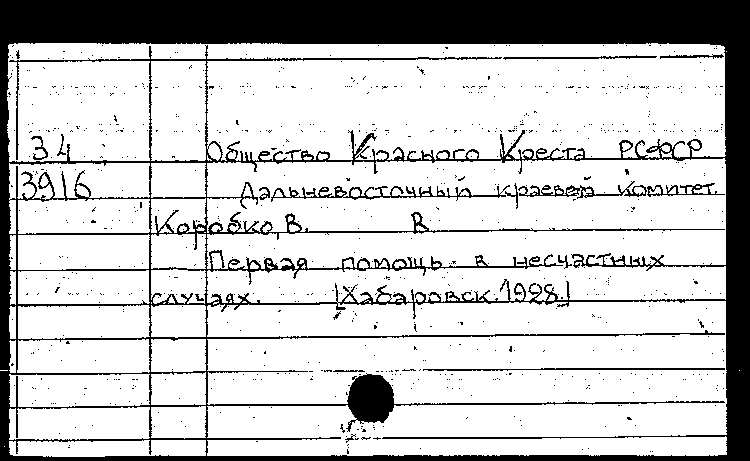 34 Общество Красного Креста РСФСР
3916 Дальневосточный краевой комитет.
Коробко, В. В
Первая помощь в несчастных
случаях. [Хабаровск. 1928.]